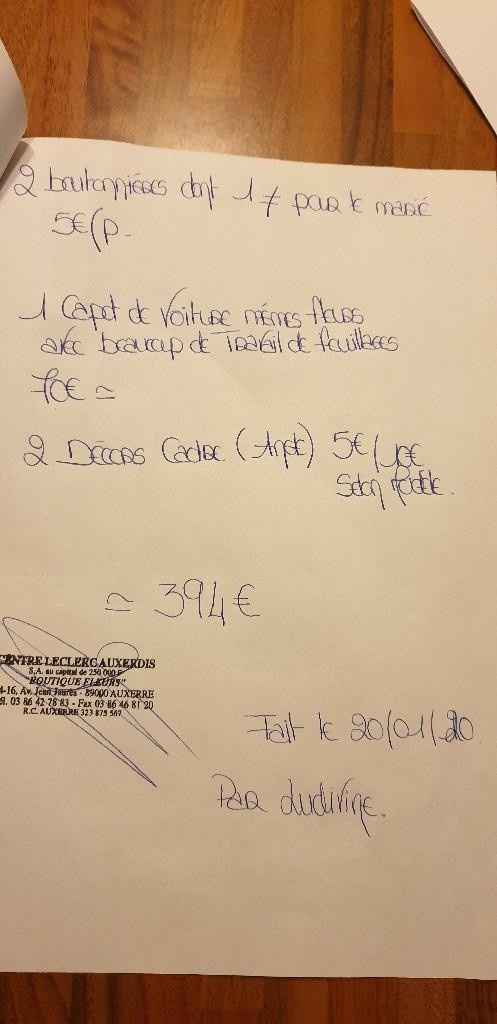 2 boutonnières dont 1 ≠ pour le marié
5€/p.
1 Capot de voiture mêmes fleurs
avec beaucoup de Travail de feuillages
70€ ≃
2 Décors Cadre (Angle) 5€/10€
Selon modèle.
≃ 394€
CENTRE LECLERC AUXERDIS
S.A. au capital de 250 000 F
"BOUTIQUE FLEURS"
-16, Av. Jean Jaurès - 89000 AUXERRE
él. 03 86 42 78 83 - Fax 03 86 46 81 20
R.C. AUXERRE 323 875 567
Fait le 20/01/20
Par Ludivine.